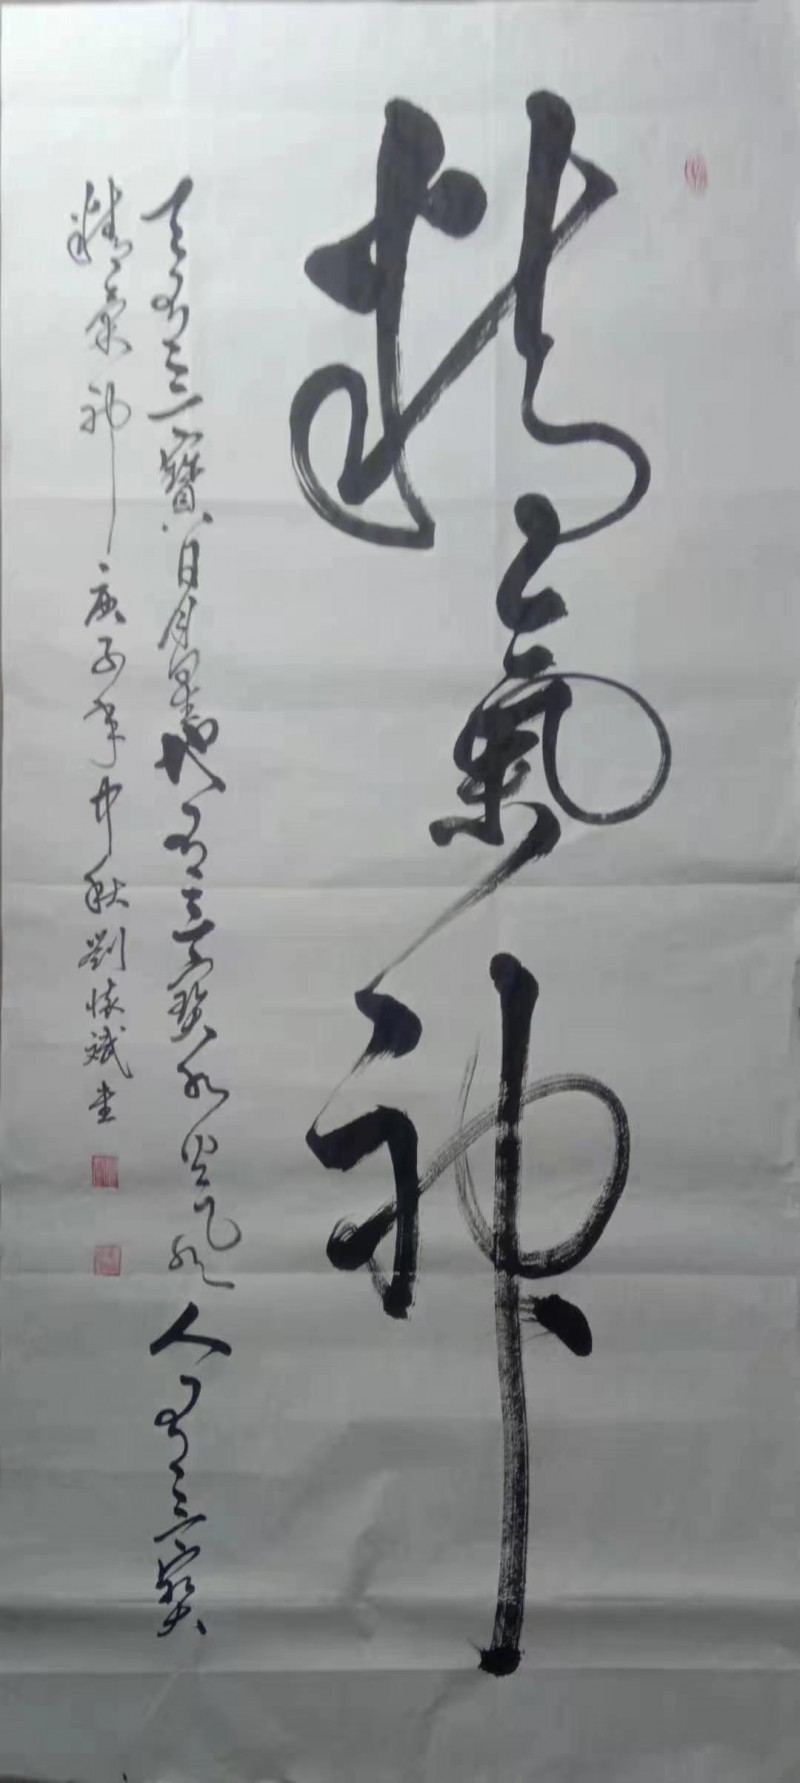 精氣神
天有三寶日月星地有三寶水火風人有三寶
精氣神庚子年中秋劉懷斌書